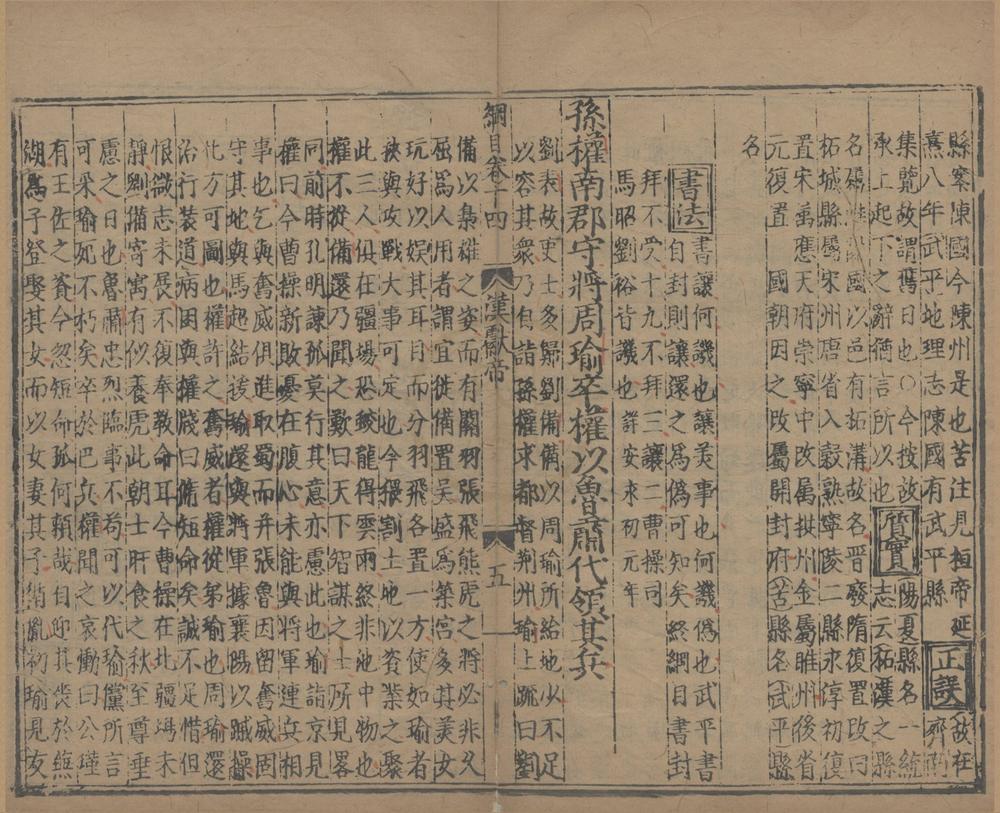 縣案陳國今陳州是也苦注見桓帝延
熹八年武平地理志陳國有武平縣正誤故在
集覽故謂舊日也○今按故一統
承上起下之辭猶言所以也質實陽夏縣名一統志云拓漢之縣
名以邑有拓溝故名晉廢隋復置改曰
柘城縣屬宋州唐省入穀熟寧陵二縣永淳初復
置宋萬應天府崇寧中改屬拱州金屬睢州後省
元復置國朝因之改屬開封府苦縣名武平縣
名
書法書讓何譏也讓美事也何譏偽也武平書
自封則讓還之為偽可知矣終綱目書封
拜不受十九不拜三讓二曹操司
馬昭劉裕皆譏也詳安來初元年
孫權南郡守將周瑜卒權以魯肅代領其兵
劉表故吏士多歸劉備備以周瑜所給地少不足
以容其衆乃自詣孫權求都督荆州瑜上疏曰劉
綱目卷十四 漢獻帝 五
備以梟雄之姿而有關羽張飛熊虎之將必非久
屈為人用者謂宜徙備置吳盛為築宮多其美女
玩好以娛其耳目而分羽飛各置一方使如瑜者
挾與攻戰大事可定也今猥割土地以資業之聚
此三人俱在疆場恐蛟龍得雲雨終非池中物也
權不從備還乃聞之歎曰天下智謀之士所見畧
同前時孔明諫孤莫行其意亦慮此也瑜詣京見
權曰今曹操新敗憂在腹心未能與將軍連兵相
事也乞與奮威俱進取蜀而并張魯因留奮威固
守其地與馬超結援瑜還與將軍據襄陽以蹴操
北方可圖也權許之奮威者權從弟瑜也周瑜還
治行裝道病困與權牋曰脩短命矣誠不足惜但
恨微志未展不復奉教命耳今曹操在北疆場未
靜劉備寄寓有似養虎此朝士旰食之秋至尊垂
慮之日也魯肅忠烈臨事不苟可以代瑜儻所言
可采瑜死不朽矣卒於巴丘權聞之哀慟曰公瑾
有王佐之資今忽短命孤何賴哉自迎其喪於蕪
湖為子登娶其女而以女妻其子循胤初瑜見友